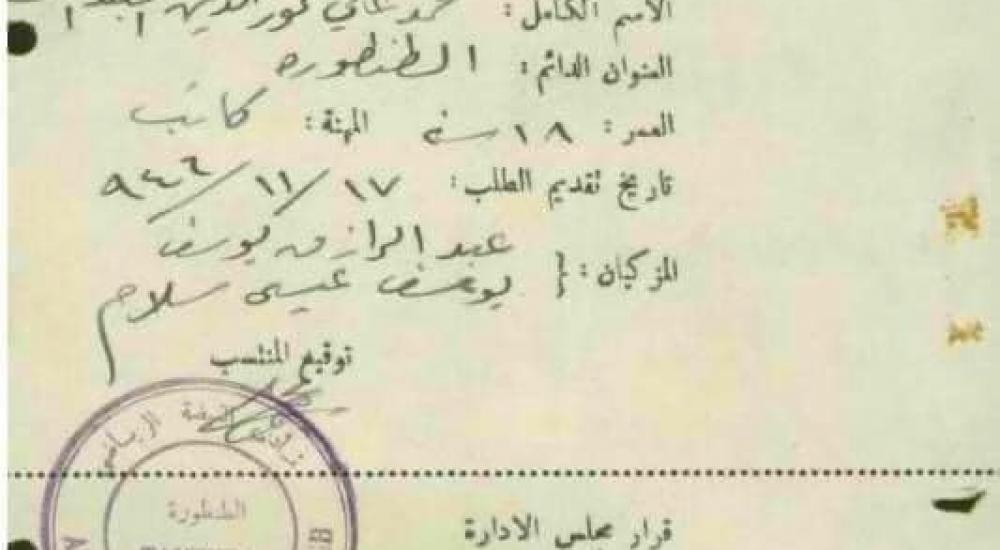 الاسم الكامل: محمد علي نور الدين
العنوان الدائم: الطنطوره
العمر: ١٨ سنة المهنة: كاتب
تاريخ تقديم الطلب: ١٧/١١/٩٤٦
المزكيان: { عبد الرازق يوسف
يوسف عيسى سلام
توقيع المنتسب
نادي النهضة الرياضي
الطنطورة
قرار مجلس الادارة